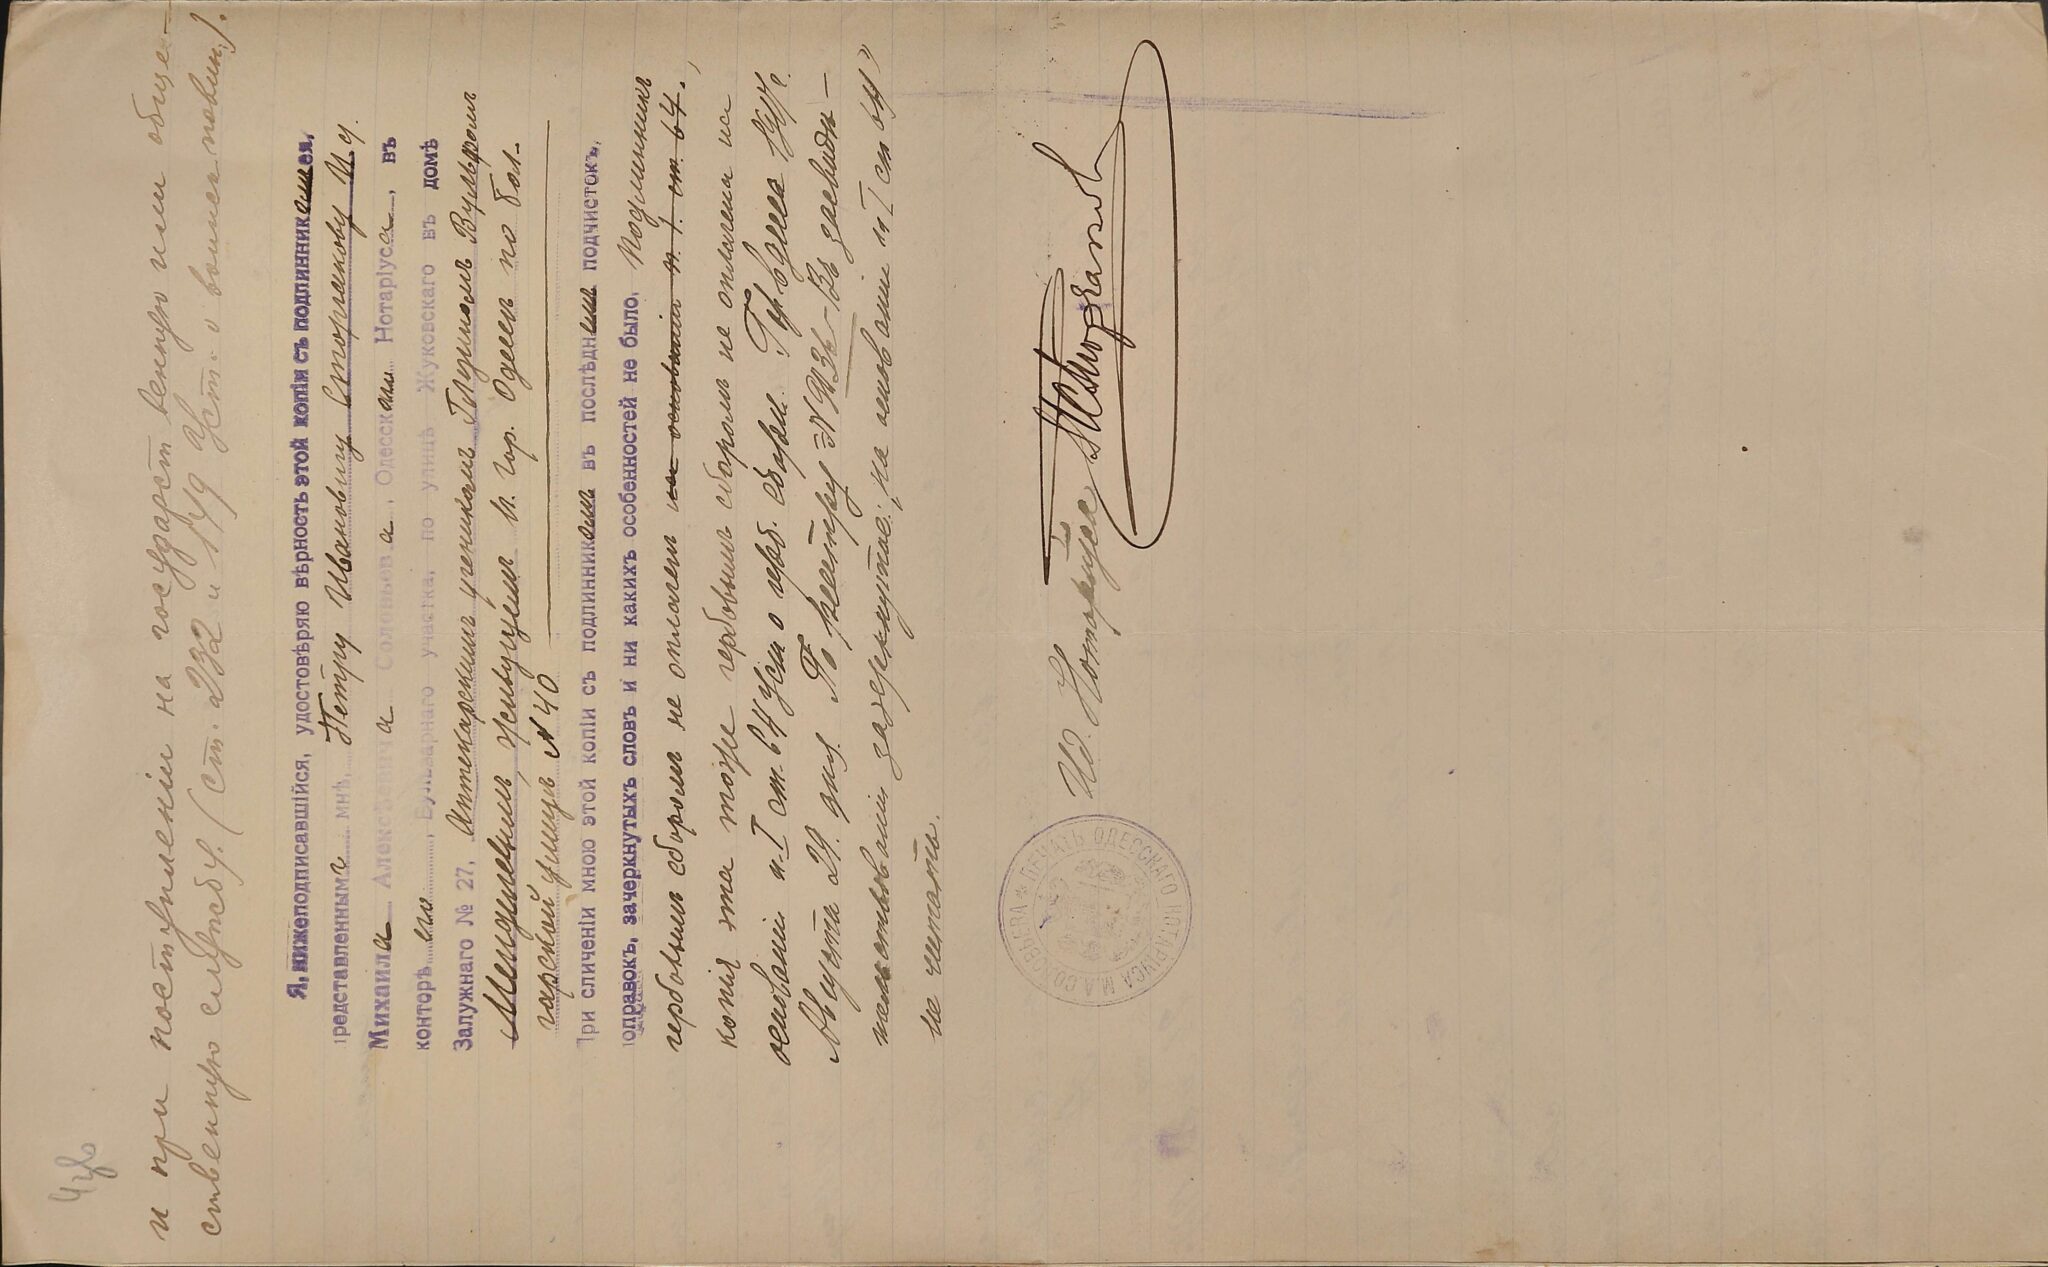 4 об
и при поступленіи на государственную или обще-
ственную службу. (ст. 232 и 149 Уст. о воинск. повин.).
Я, нижеподписавшійся, удостовѣряю вѣрность этой копіи съ подлинникомъ ея,
представленнымъ мнѣ, Петру Ивановичу Сторчакову И. д.
Михаила Алексѣевича Соловьева, Одесскаго Нотаріуса, въ
конторѣ его, Бульварнаго участка, по улицѣ Жуковскаго въ домѣ
Запужнаго № 27, Аптекарскимъ ученикомъ Іоудимомъ Вульфомъ
жительствующимъ въ гор. Одессѣ по Бол-
гарской улицѣ № 40
При сличеніи мною этой копіи съ подлинникомъ въ послѣднемъ подчистокъ,
поправокъ, зачеркнутыхъ словъ и ни какихъ особенностей не было. Подлинникъ
гербовымъ сборомъ не оплоченъ на основаніи п. 1. ст. 64.,
копія эта тоже гербовымъ сборомъ не оплочена на
основаніи п. I ст. 64 Уст о герб. сборѣ. Гор. Одесса
Августа 29 дня. По реестру № Въ засвидѣ-
тельствованіи зачеркнутое: „на основаніи п I ст 64"
не читать.
И.д. Нотаріуса П Сторчаков
* ПЕЧАТЬ ОДЕССКАГО НОТАРІУСА М. А. СОЛОВЬЕВА